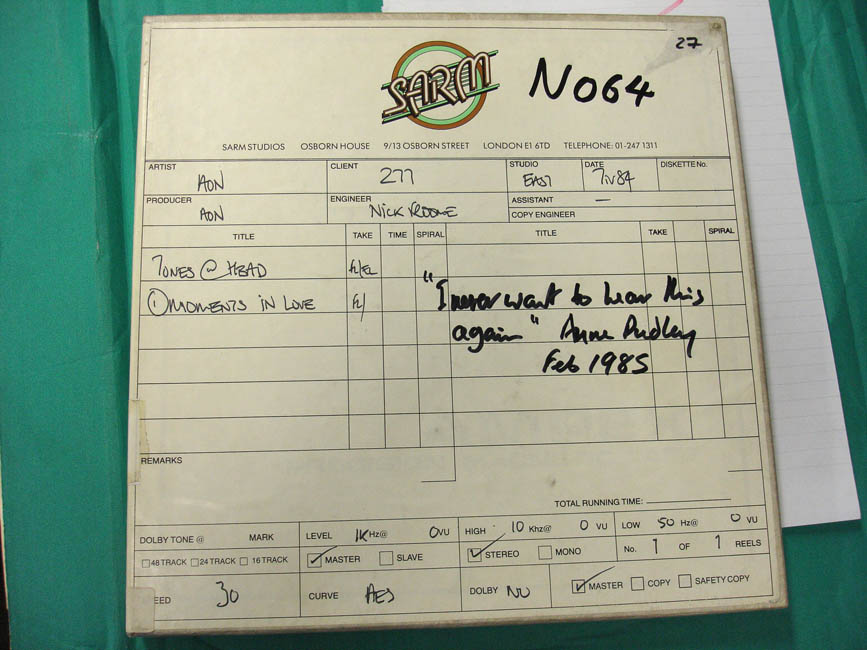 27
SARM
NO64
SARM STUDIOS OSBORN HOUSE 9/13 OSBORN STREET LONDON E1 6TD TELEPHONE: 01-247 1311
ARTIST AON
CLIENT 277
STUDIO EAST
DATE 7iv84
DISKETTE No.
PRODUCER AON
ENGINEER NICK
ASSISTANT —
COPY ENGINEER
TITLE TAKE TIME SPIRAL TITLE TAKE SPIRAL
TONES @ HEAD
① MOMENTS IN LOVE
"I never want to hear this
again" Anne Dudley
Feb 1985
REMARKS
TOTAL RUNNING TIME:
DOLBY TONE @ MARK
LEVEL 1K Hz@ 0VU
HIGH 10 Khz@ 0 VU
LOW 50 Hz@ 0 VU
48 TRACK 24 TRACK 16 TRACK
MASTER SLAVE
STEREO MONO
No. 1 OF 1 REELS
EED 30
CURVE AES
DOLBY NO
MASTER COPY SAFETY COPY